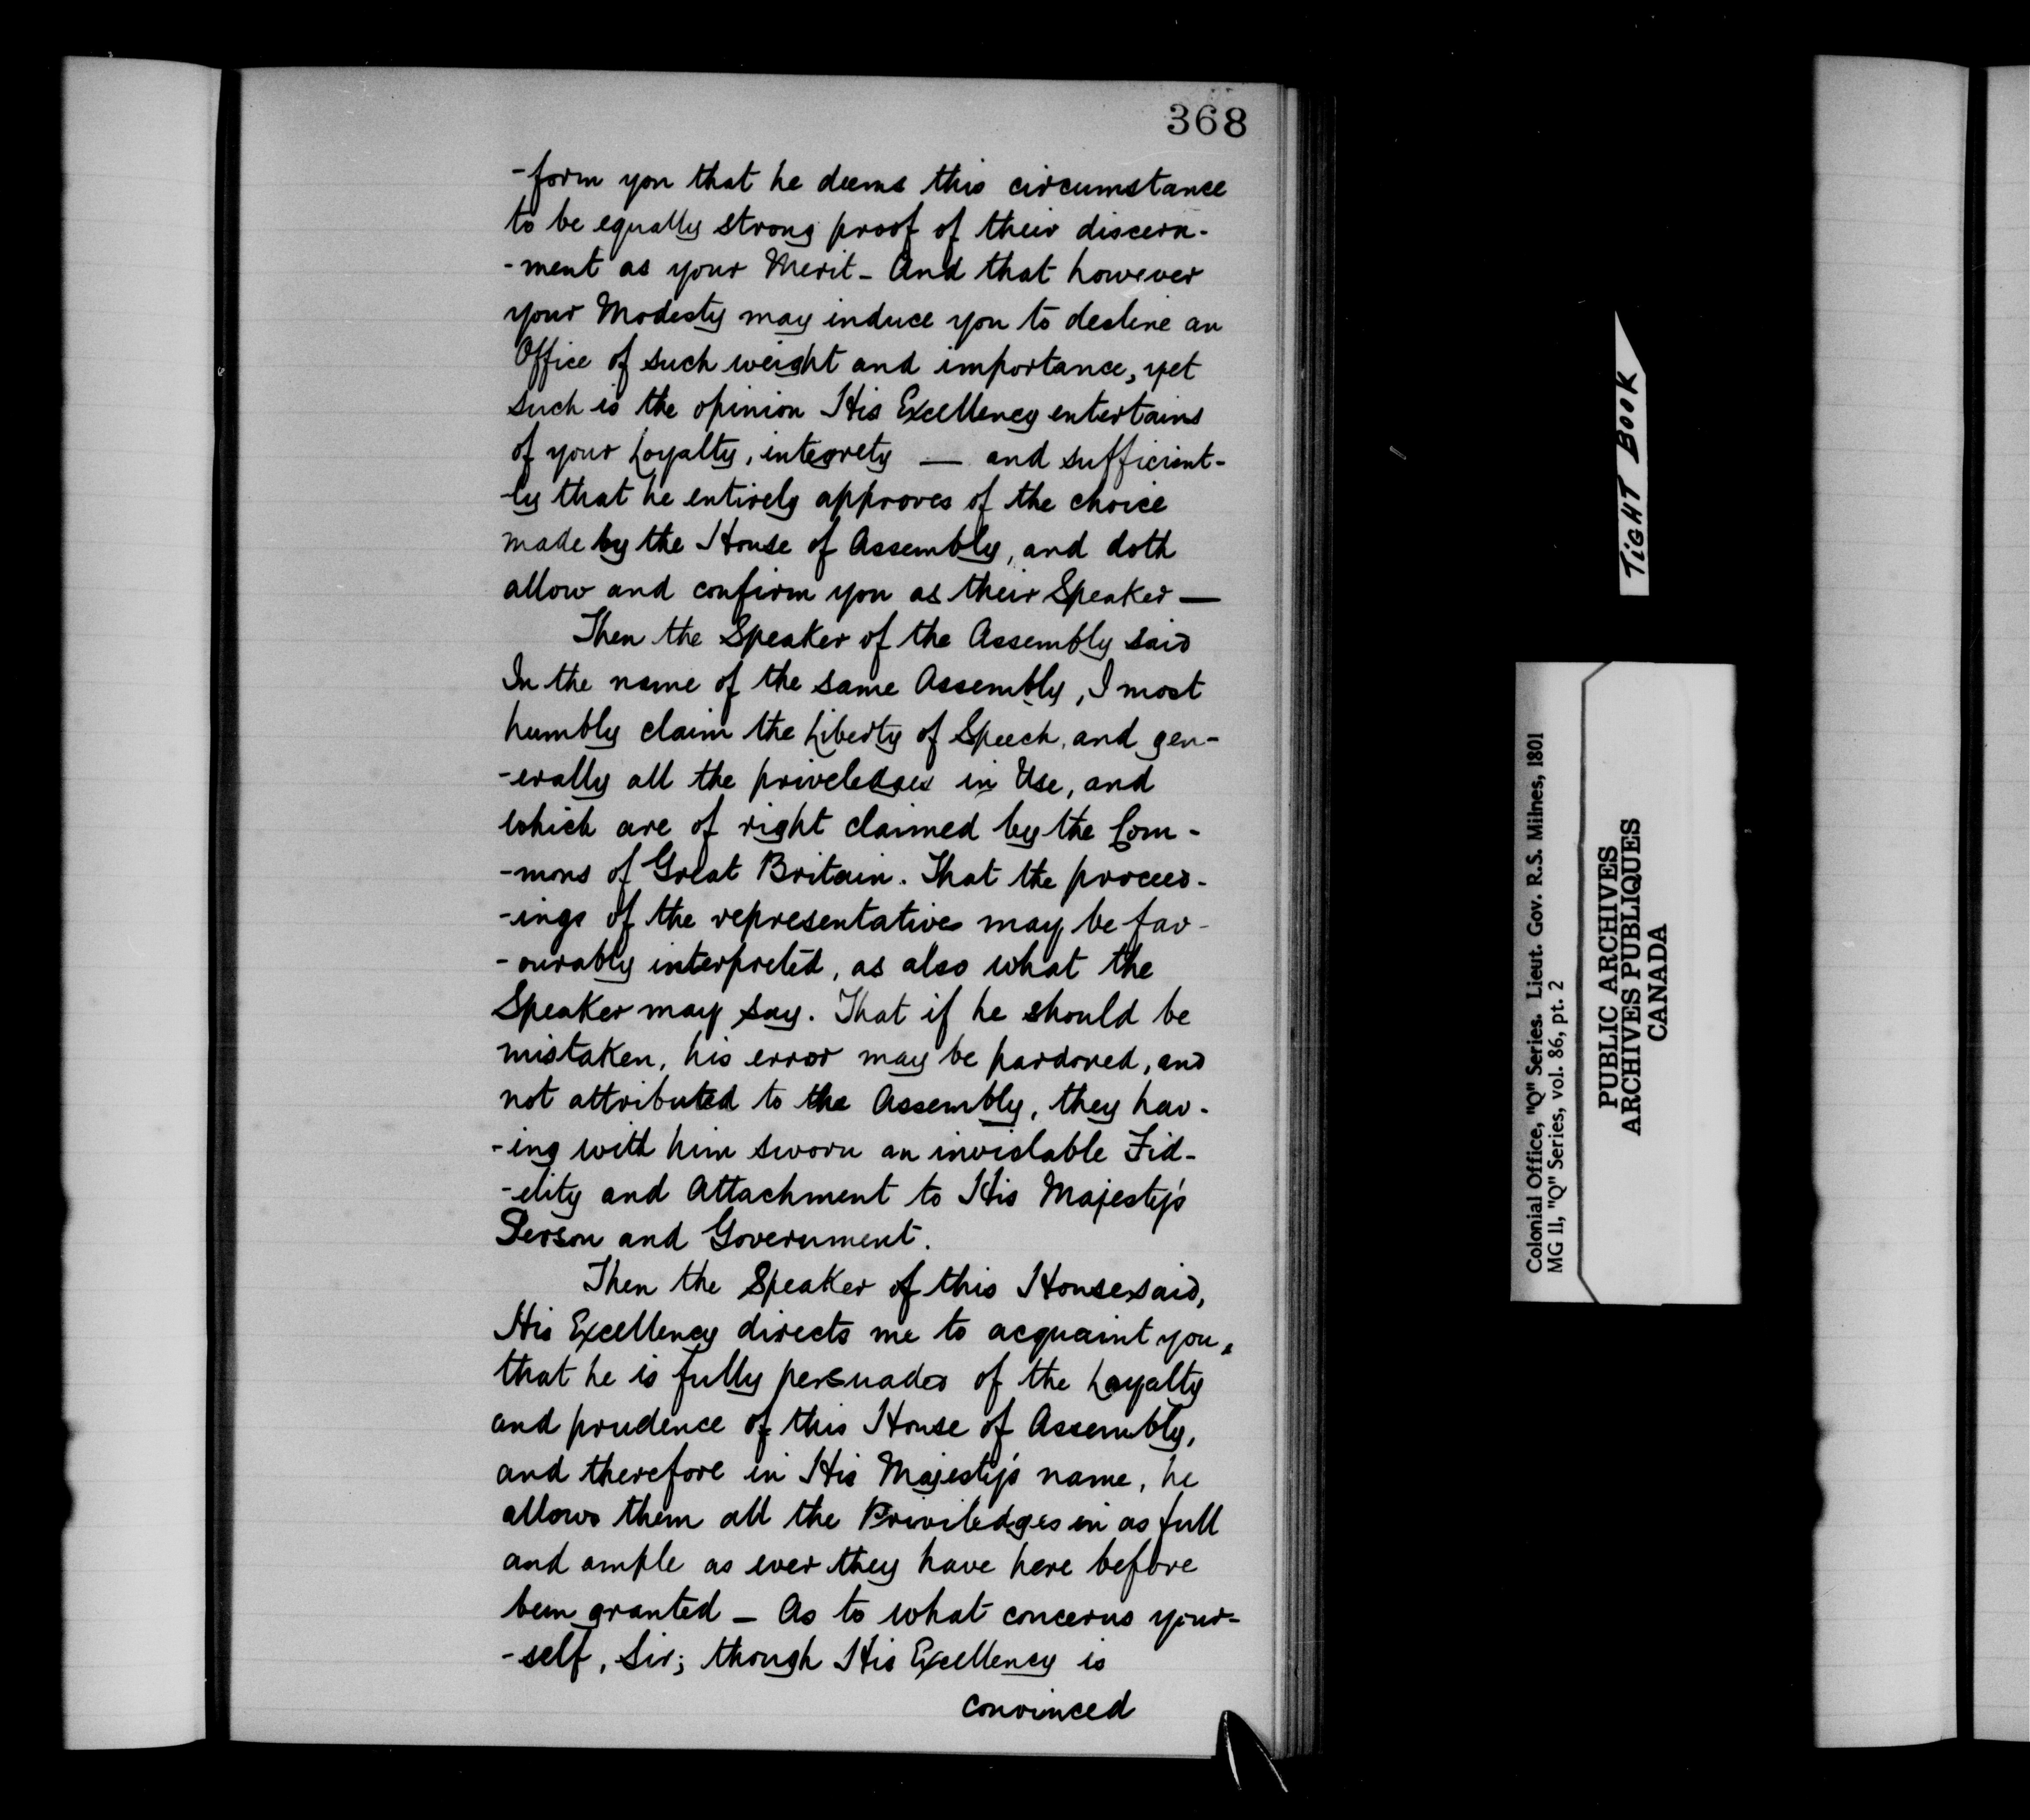 368
-form you that he deems this circumstance
to be equally strong proof of their discern-
-ment as your Merit - And that however
your Modesty may induce you to decline an
Office of such weight and importance, yet
such is the opinion His Excellency entertains
of your Loyalty, integrety — and sufficient-
-ly that he entirely approves of the choice
made by the House of Assembly, and doth
allow and confirm you as their Speaker —
Then the Speaker of the Assembly said
In the name of the same Assembly, I most
humbly claim the Liberty of Speech, and gen-
-erally all the priveledges in Use, and
which are of right claimed by the Com-
-mons of Great Britain. That the proceed-
-ings of the representatives may be fav-
-ourably interpreted, as also what the
Speaker may say. That if he should be
mistaken, his error may be pardoned, and
not attributed to the Assembly, they hav-
-ing with him sworn an inviolable Fid-
-elity and Attachment to His Majesty's
Person and Government.
Then the Speaker of this House said,
His Excellency directs me to acquaint you,
that he is fully persuaded of the Loyalty
and prudence of this House of Assembly,
and therefore in His Majesty's name, he
allows them all the Priviledges in as full
and ample as ever they have here before
been granted - As to what concerns your-
-self, Sir; though His Excellency is
convinced
TIGHT BOOK
Colonial Office, "Q" Series. Lieut. Gov. R.S. Milnes, 1801
MG 11, "Q" Series, vol. 86, pt. 2
PUBLIC ARCHIVES
ARCHIVES PUBLIQUES
CANADA